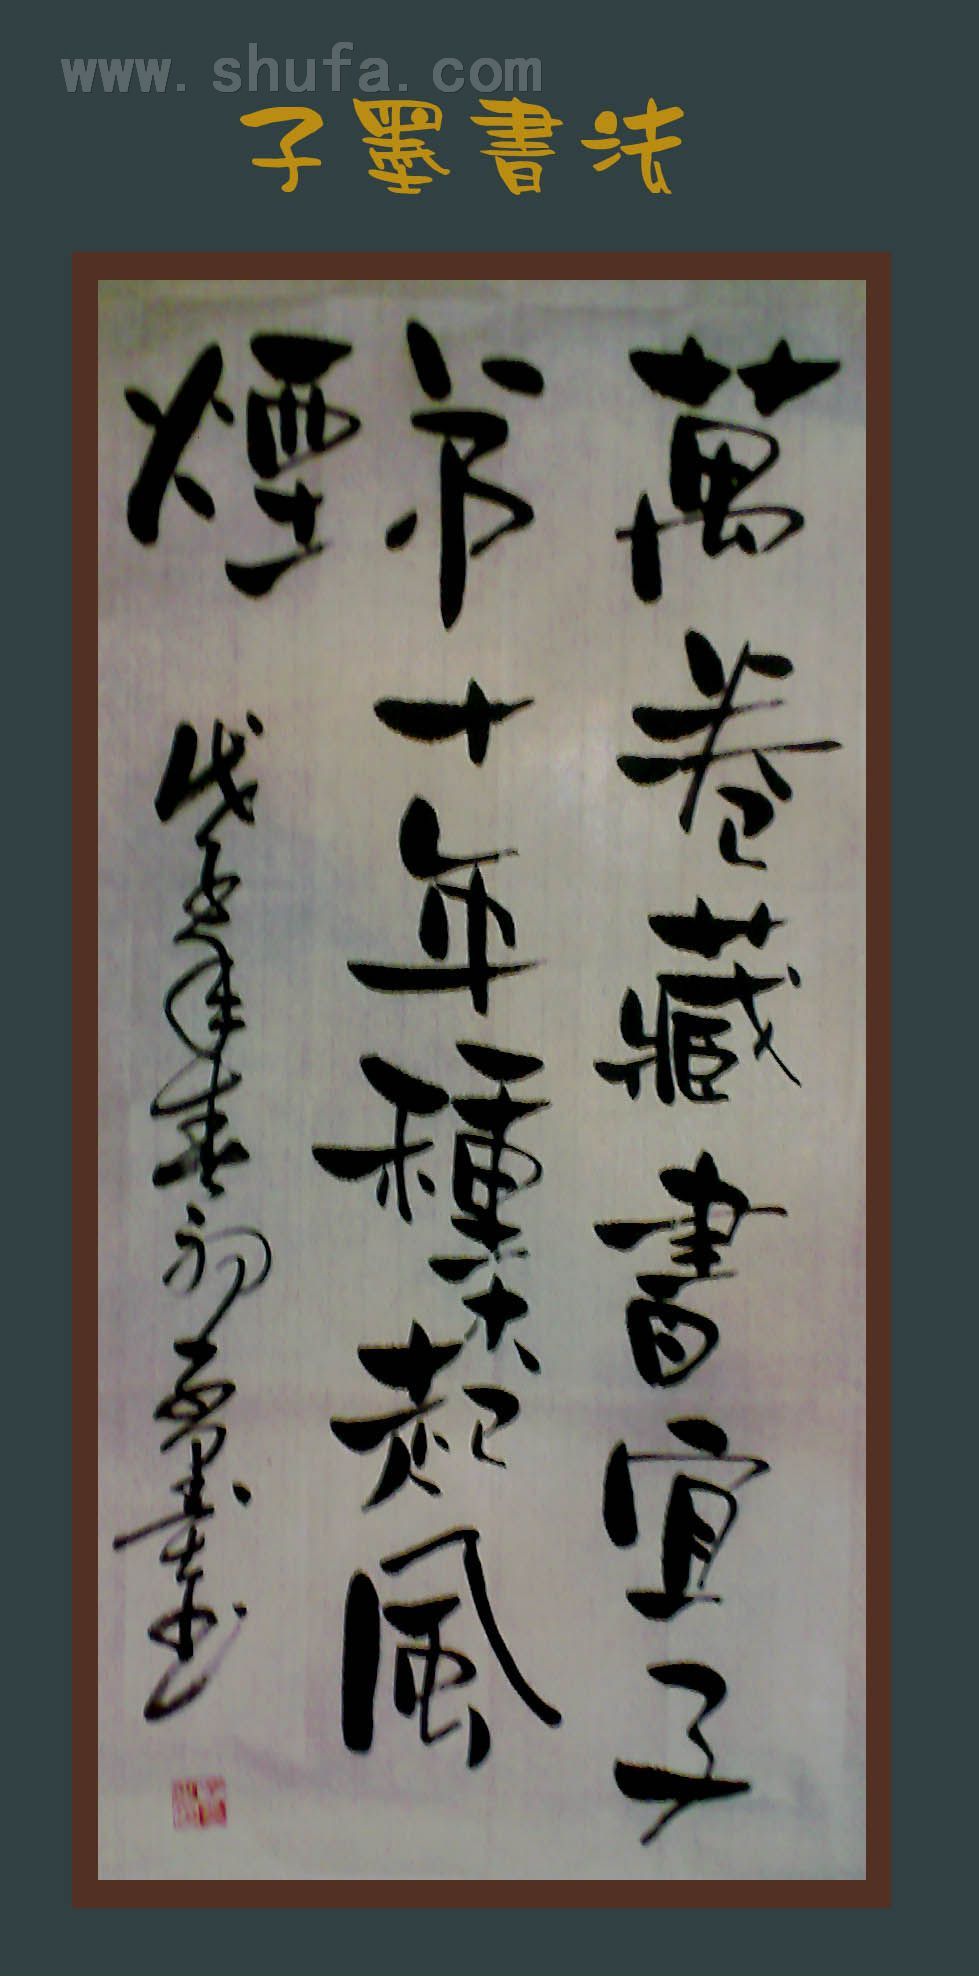 www.shufa.com
子墨書法
萬卷藏書宜子
弟十年種木起風
煙
戊子年春初